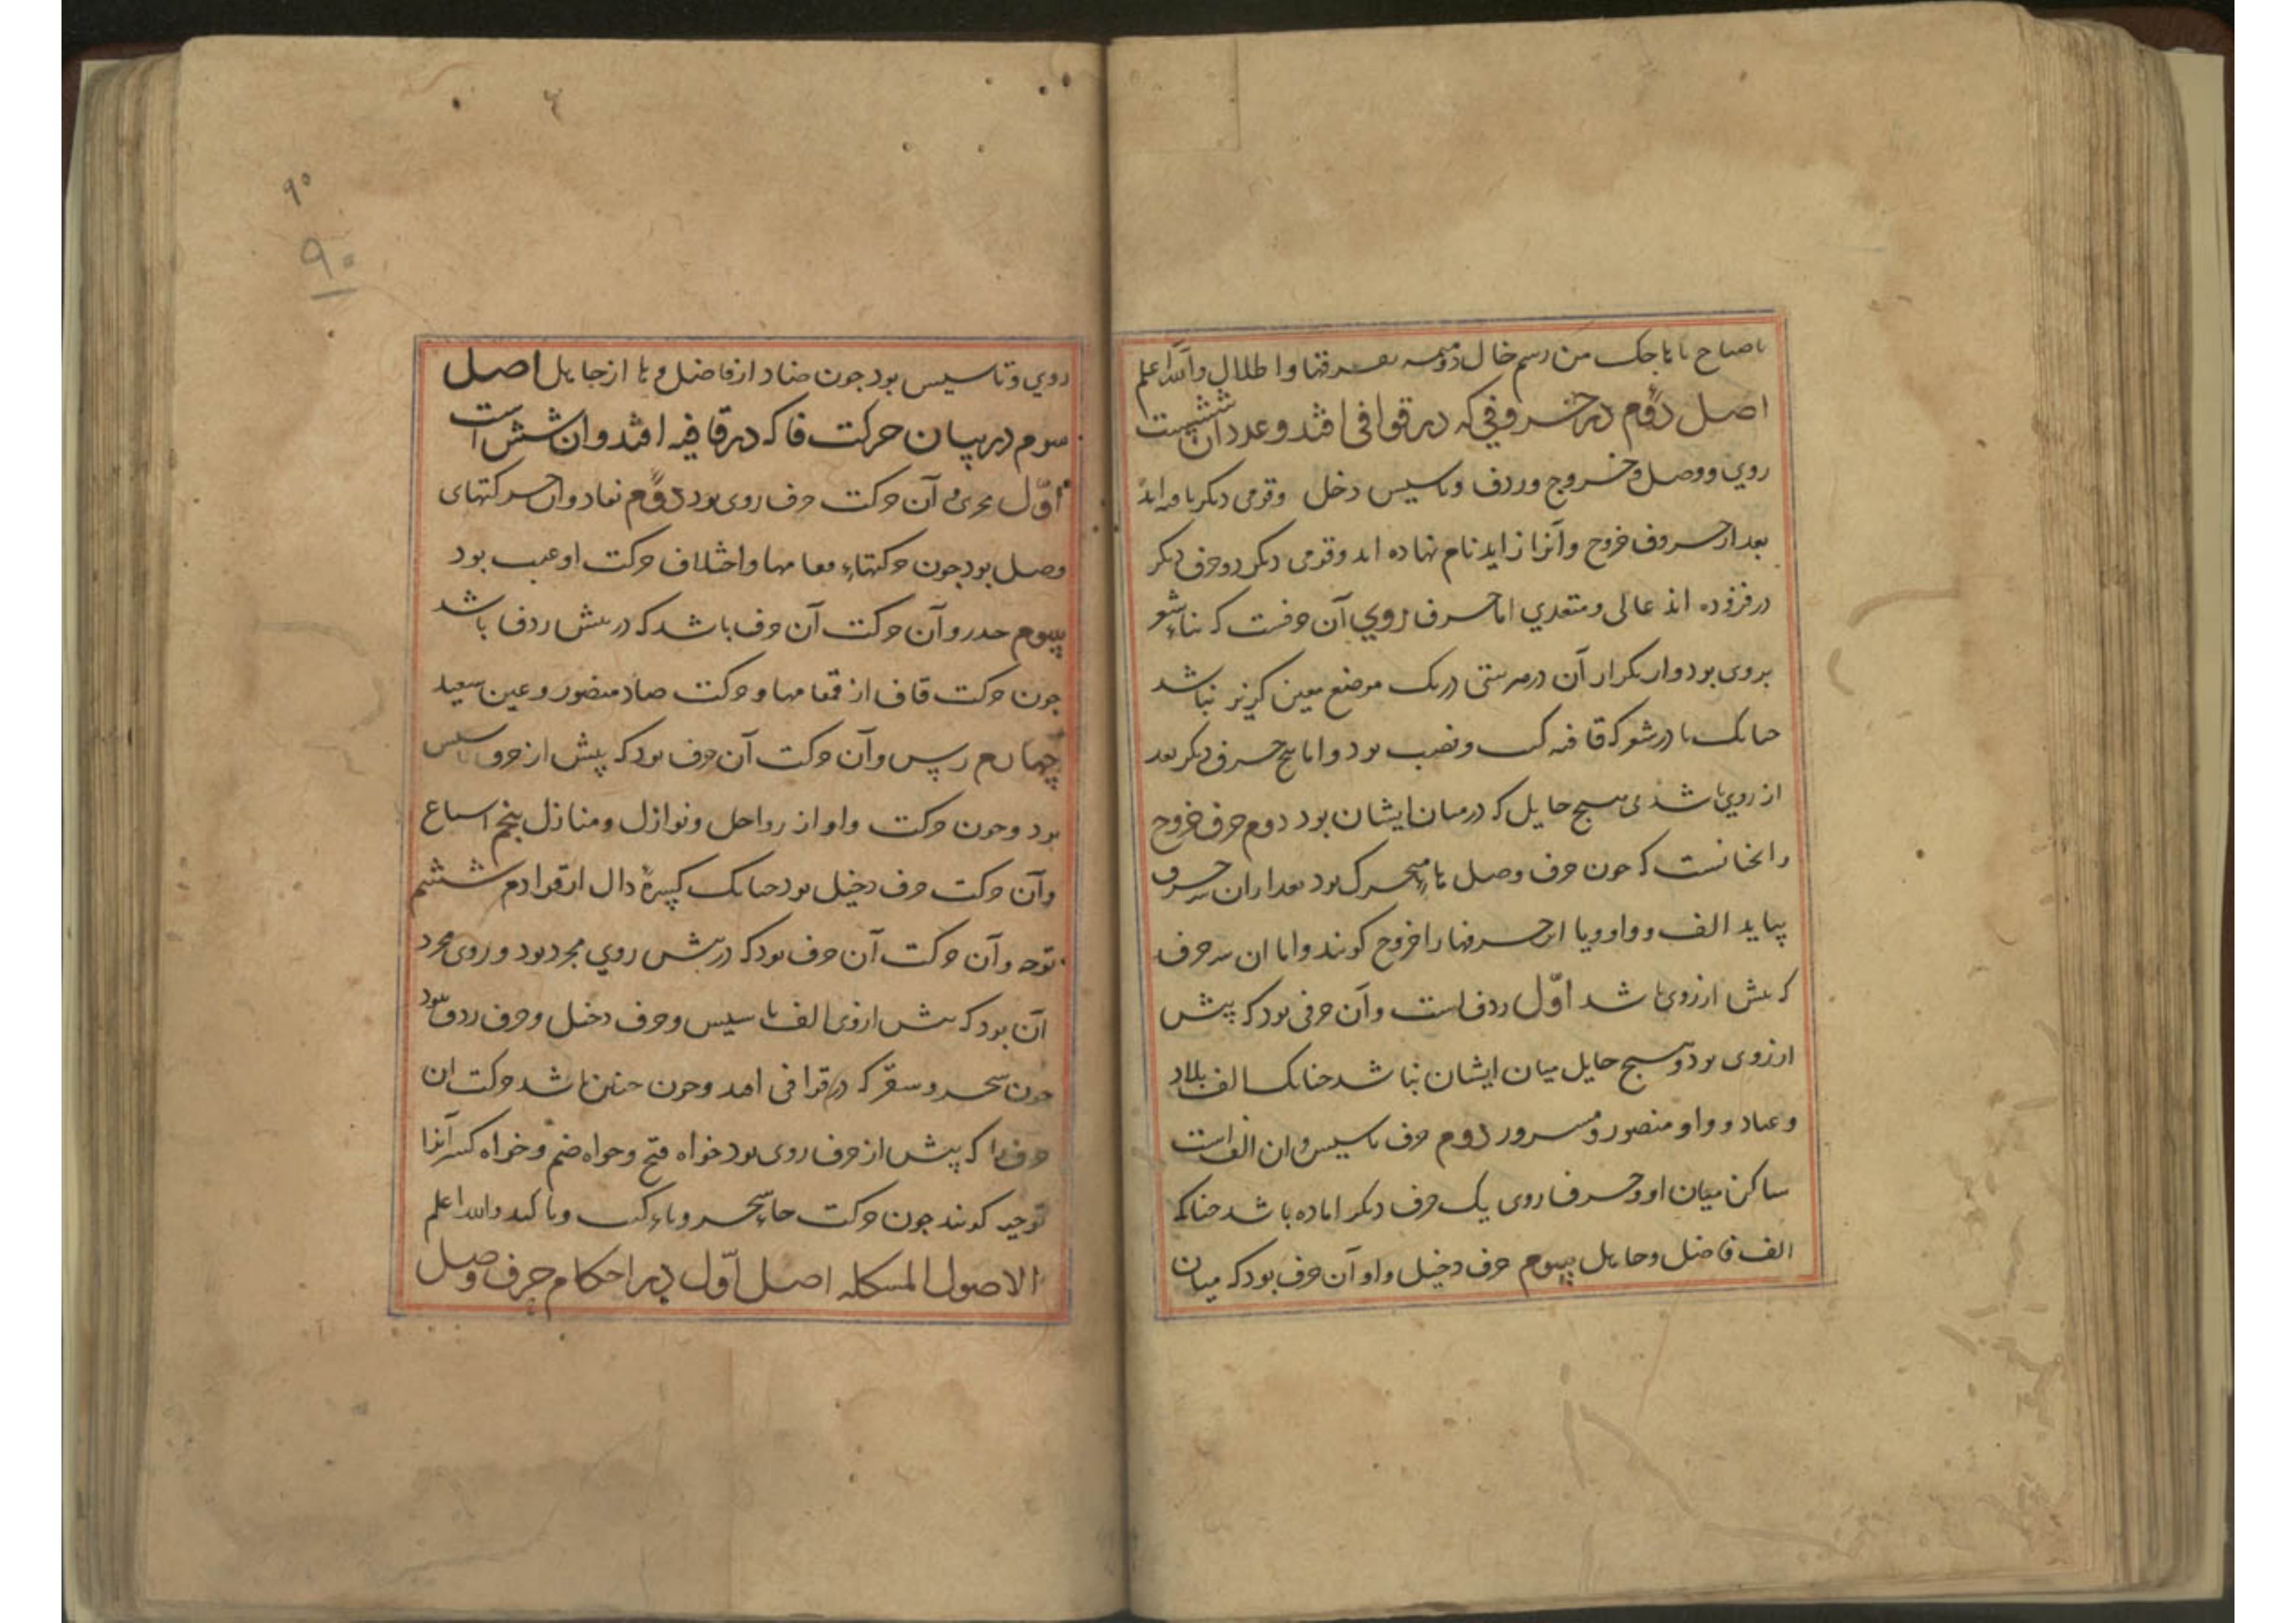 اصل دوم در حروفی که در قوافی افتد و عدد آن شش است
روی و وصل و خروج و ردف و تاسیس دخل وقومی دیکر
بعد از حروف خروج وآنرا زاید نام نهاده اند وقومی دیکر دو حرف دیکر
در فزوده اند عالی ومتعدی اما حرف روی آن حرفست که بناء شعر
بروی بود واز تکرار آن در هر بیتی در یک موضع معین کریز نباشد
جنانک با در شعر که قافیه کتب ونصب بود واما پنج حرف دیکر بعد
از روی باشد بی هیج حایل که در میان ایشان بود دوم حرف خروج
وانجانست که جون حرف وصل هاء متحرک بود بعد از آن سه حرف
بیاید الف و واو ویا این حرفها را خروج کویند واما ان سه حرف
که بیش از روی باشد اوّل ردف است وآن حرفی بود که پیش
از روی بود وهیج حایل میان ایشان نباشد جنانک الف بلاد
وعباد و واو منصور ومسرور دوم حرف تاسیس وان الف است
ساکن میان او وحرف روی یک حرف دیکر اماده باشد جنانکه
الف فاضل وجاهل سیوم حرف دخیل واو آن حرف بود که میان
روی وتاسیس بود جون ضاد از فاضل وها از جاهل اصل
سوم در بیان حرکت ها که در قافیه افتد وان شش است
اوّل مجری و آن حرکت حرف روی بود دوم نفاد وان حرکتهای
وصل بود جون حرکتهاء مقامها واختلاف حرکت او عیب بود
سیوم حذرو آن حرکت آن حرف باشد که در بیش ردف باشد
جون حرکت قاف از فمقامها وحرکت صاد منصور وعین سعید
چهارم رس وآن حرکت آن حرف بود که پیش از حرف تاسیس
بود وجون حرکت واو از رواحل ونوازل ومنازل پنجم اسباع
وآن حرکت حرف دخیل بود جنانک کسرهٔ دال از قوادم ششم
توجه وآن حرکت آن حرف بود که در بیش روی مجرد بود وروی مجرد
آن بود که بیش از روی الف تاسیس وحرف دخیل وحرف ردف نبود
جون سحر وسفر که در قوافی افتد وجون جنین باشد حرکت ان
حرف را که پیش از حرف روی بود خواه فتح وخواه ضم وخواه کسر آنرا
توجیه کویند جون حرکت حاء سحر وتاء کتب وبا کبد والله اعلم
الاصول المشکله اصل اوّل در احکام حرف وصل
۹۰
۹۰